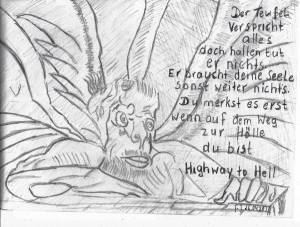 Der Teufel
verspricht
alles
doch halten tut
er nichts.
Er braucht deine Seele
sonst weiter nichts.
Du merkst es erst
wenn auf dem Weg
zur Hölle
du bist
Highway to Hell